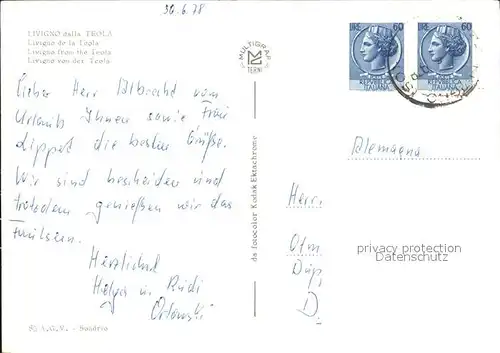 30.6.78
LIVIGNO dalla TEOLA
Livigno de la Teola
Livigno from the Teola
Livigno von der Teola
MULTIGRAF
TERNI
LIRE 60
LIRE 60
REPUBBLICA ITALIANA
REPUBBLICA ITALIANA
Lieber Herr Albrecht vom
Urlaub Ihnen sowie Frau
Lippet die besten Grüße.
Wir sind bescheiden und
trotzdem genießen wir das
Faulsein.
Herzlichst
Helga u. Rudi
Orlowski
da fotocolor Kodak Ektachrome
Alemagna
Herr.
Otm
Dip
D.
privacy protection
Datenschutz
- Sondrio